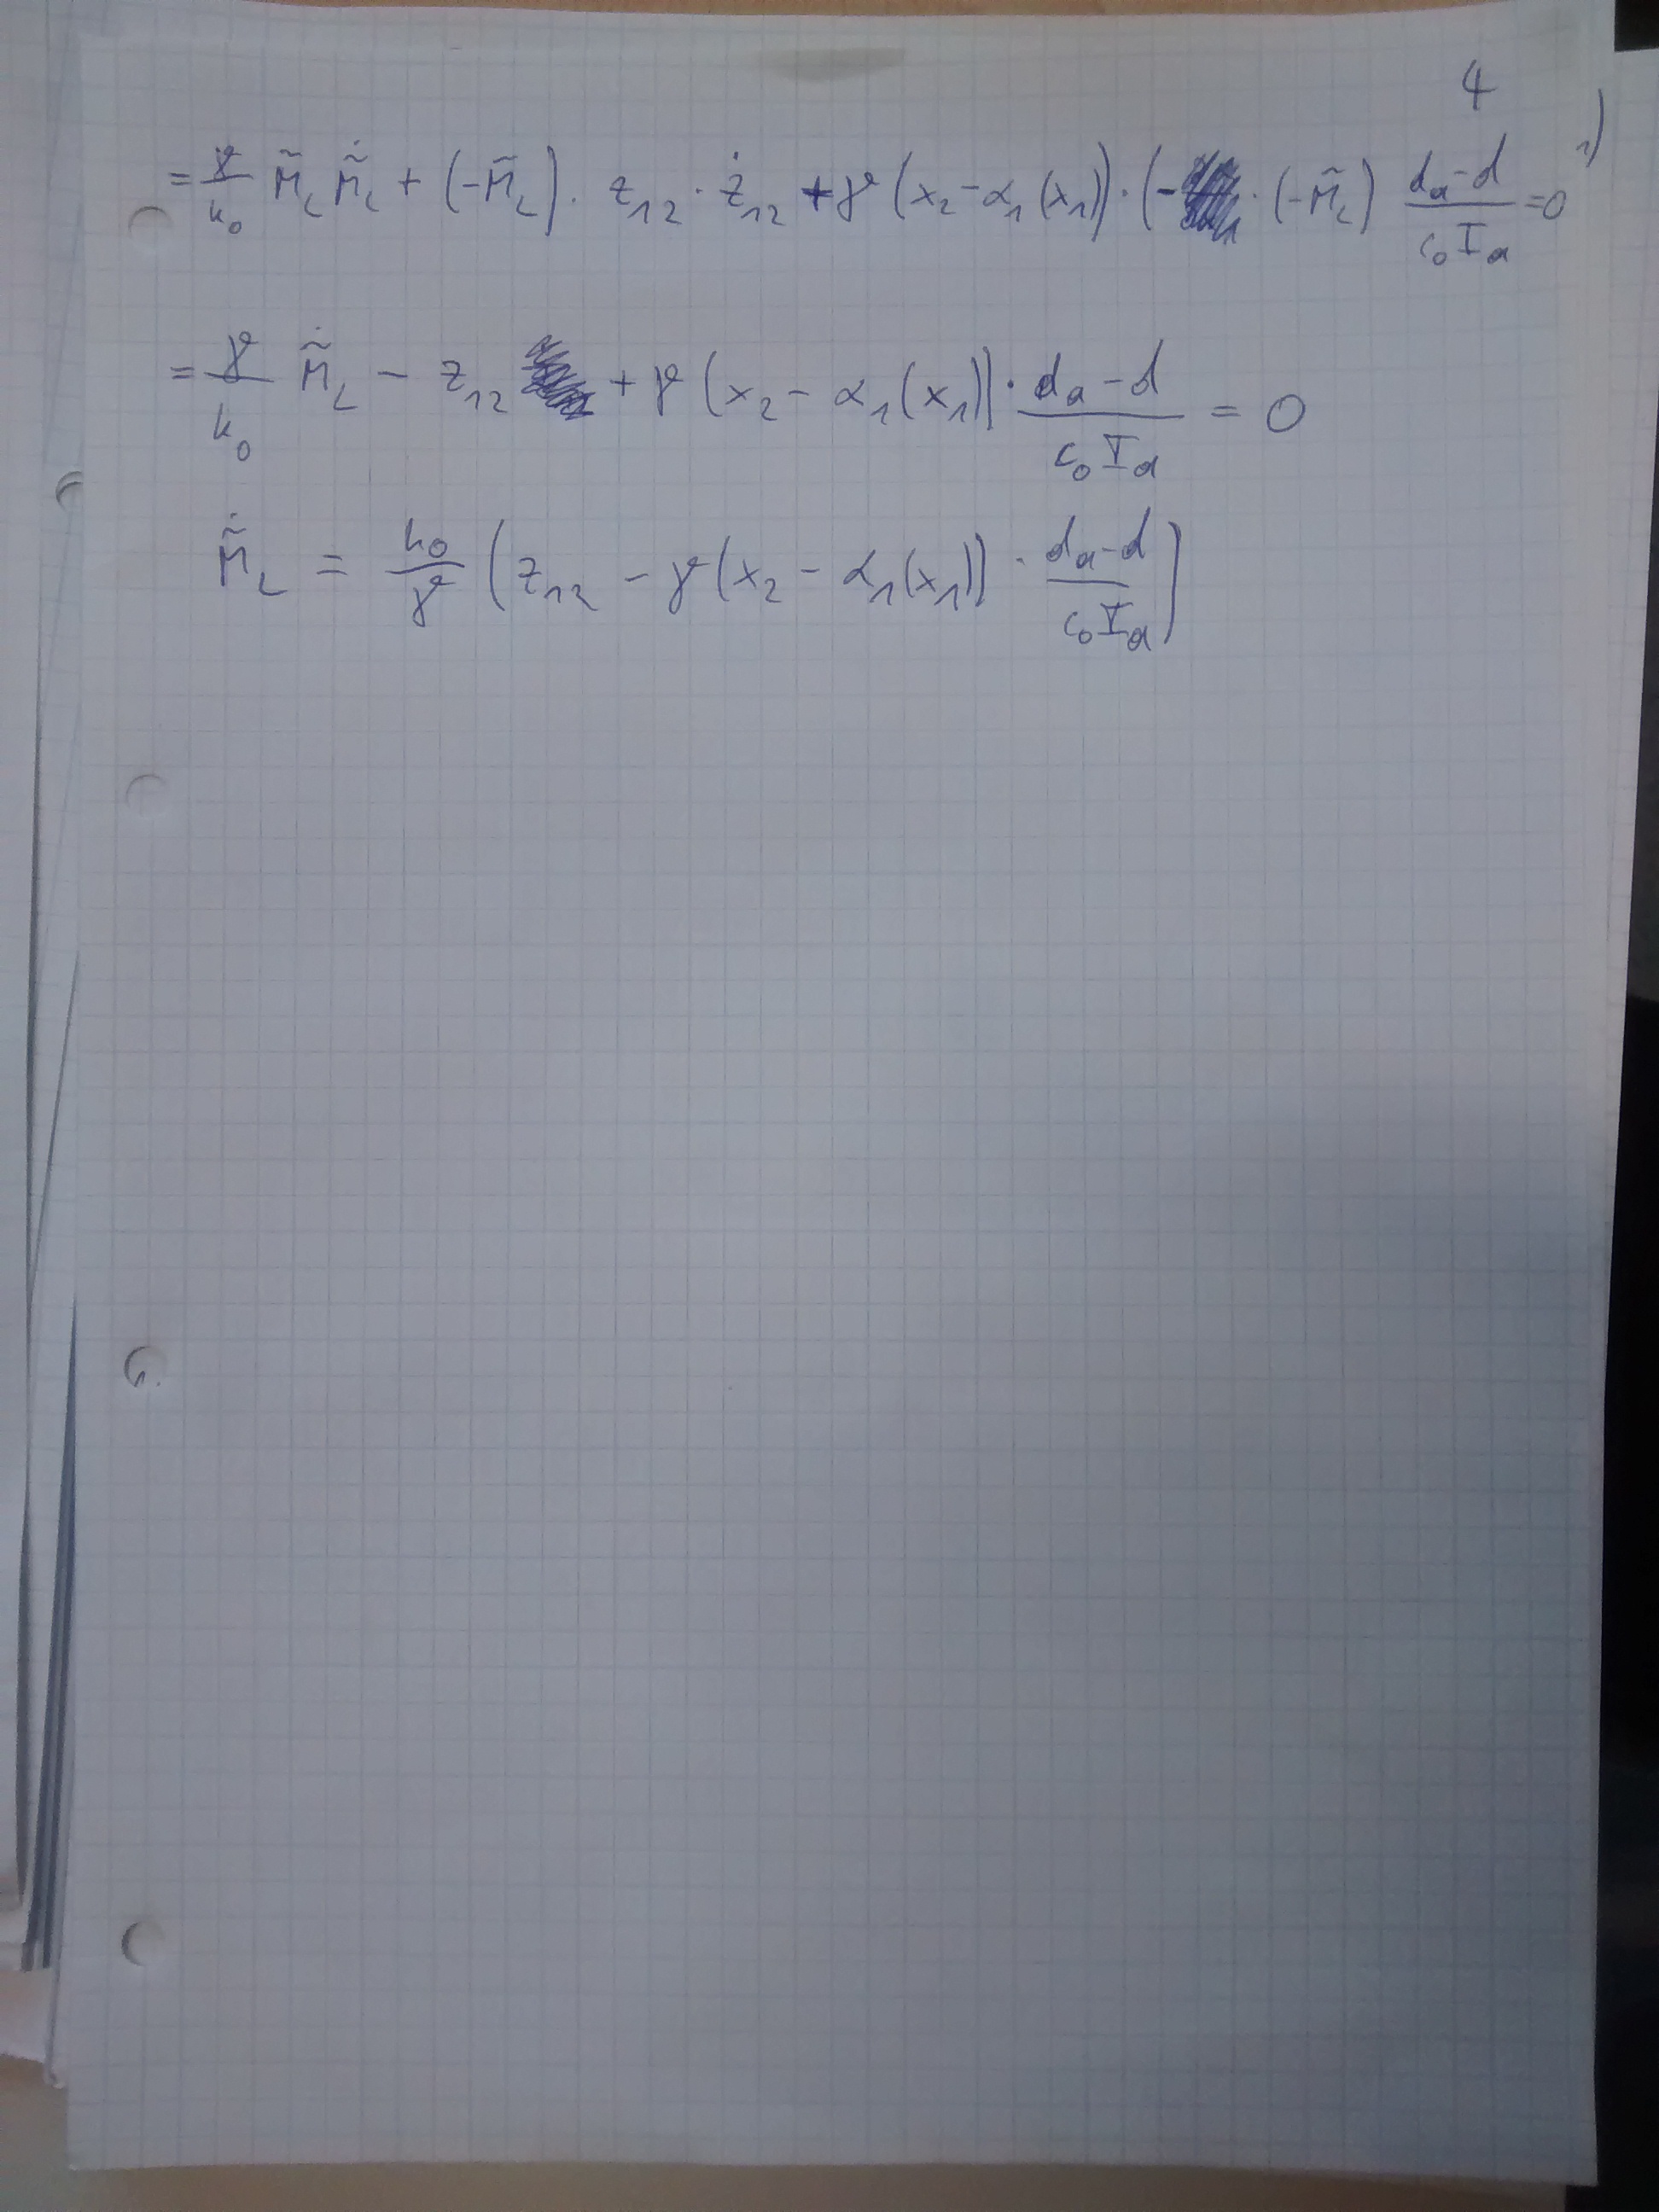 4
= γ/k₀ M̃_L M̃̇_L + (-M̃_L) · z₁₂ · ż₁₂ + γ (x₂ - α₁(x₁)) · (- · (-M̃_L) (d_a - d)/(c₀ I_a) = 0 1)
= γ/k₀ M̃̇_L - z₁₂ + γ (x₂ - α₁(x₁)) · (d_a - d)/(c₀ I_a) = 0
M̃̇_L = k₀/γ (z₁₂ - γ (x₂ - α₁(x₁)) · (d_a - d)/(c₀ I_a))